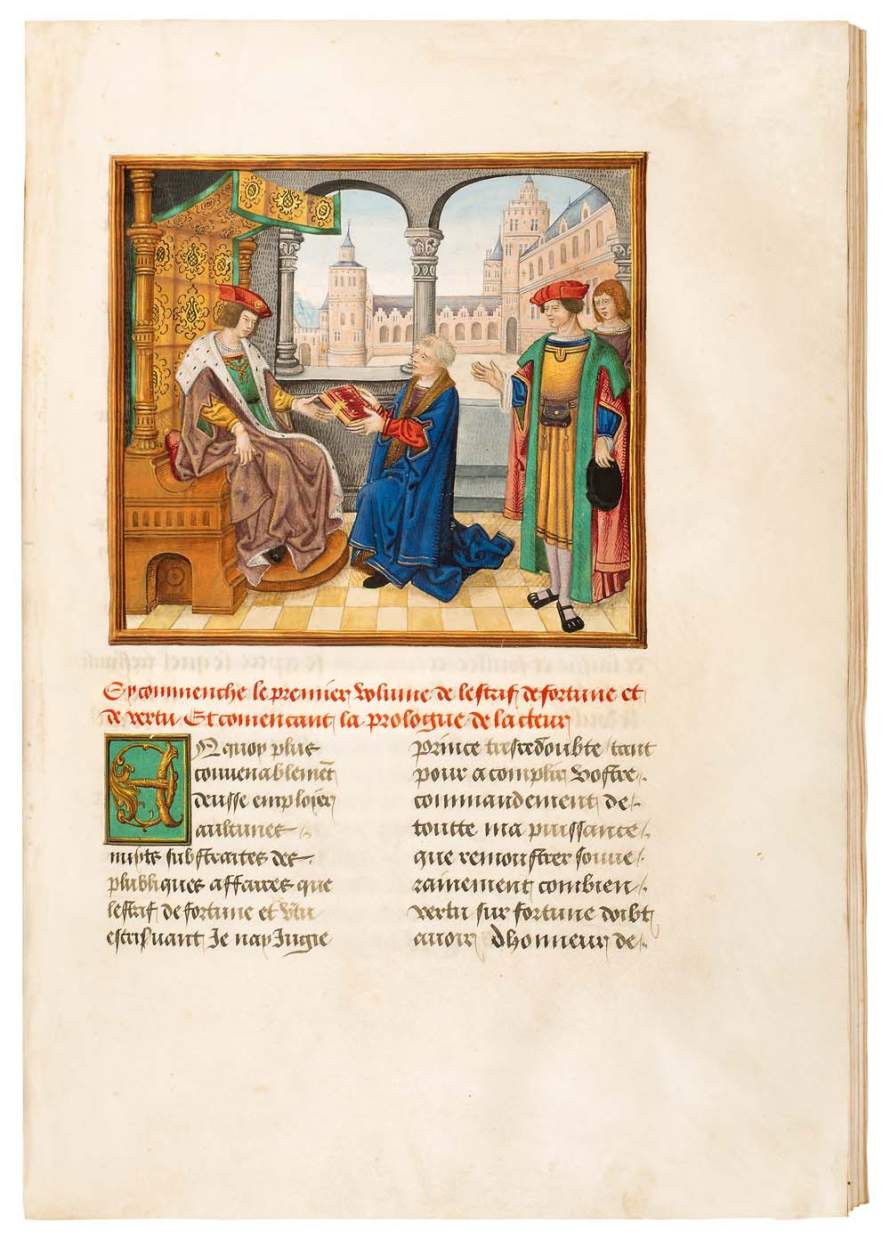 Cy commenche le premier volume de lestrif de fortune et
de vertu Et comencant la prologue de lacteur
En quoy plus
convenablemẽt
deusse employer
aulcunes
nuyts substraites des
publiques affaires que
lestrif de fortune et vtu
escripvant Je nay Jugie
prince tresredoubte tant
pour acomplir vostre
commandement de
toutte ma puissance
que remonstrer souue
rainement combien
vertu sur fortune doibt
avoir dhonneur de